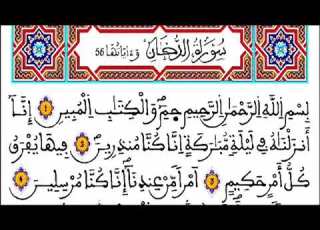 سُورَةُ الدُّخَانِ وَءَايَاتُهَا 56
بِسْمِ اللَّهِ الرَّحْمَٰنِ الرَّحِيمِ حَمِ وَالْكِتَٰبِ الْمُبِينِ 1 إِنَّآ
أَنزَلْنَٰهُ فِي لَيْلَةٍ مُّبَٰرَكَةٍ إِنَّا كُنَّا مُنذِرِينَ 2 فِيهَا يُفْرَقُ
كُلُّ أَمْرٍ حَكِيمٍ 3 أَمْراً مِّنْ عِندِنَآ إِنَّا كُنَّا مُرْسِلِينَ 4